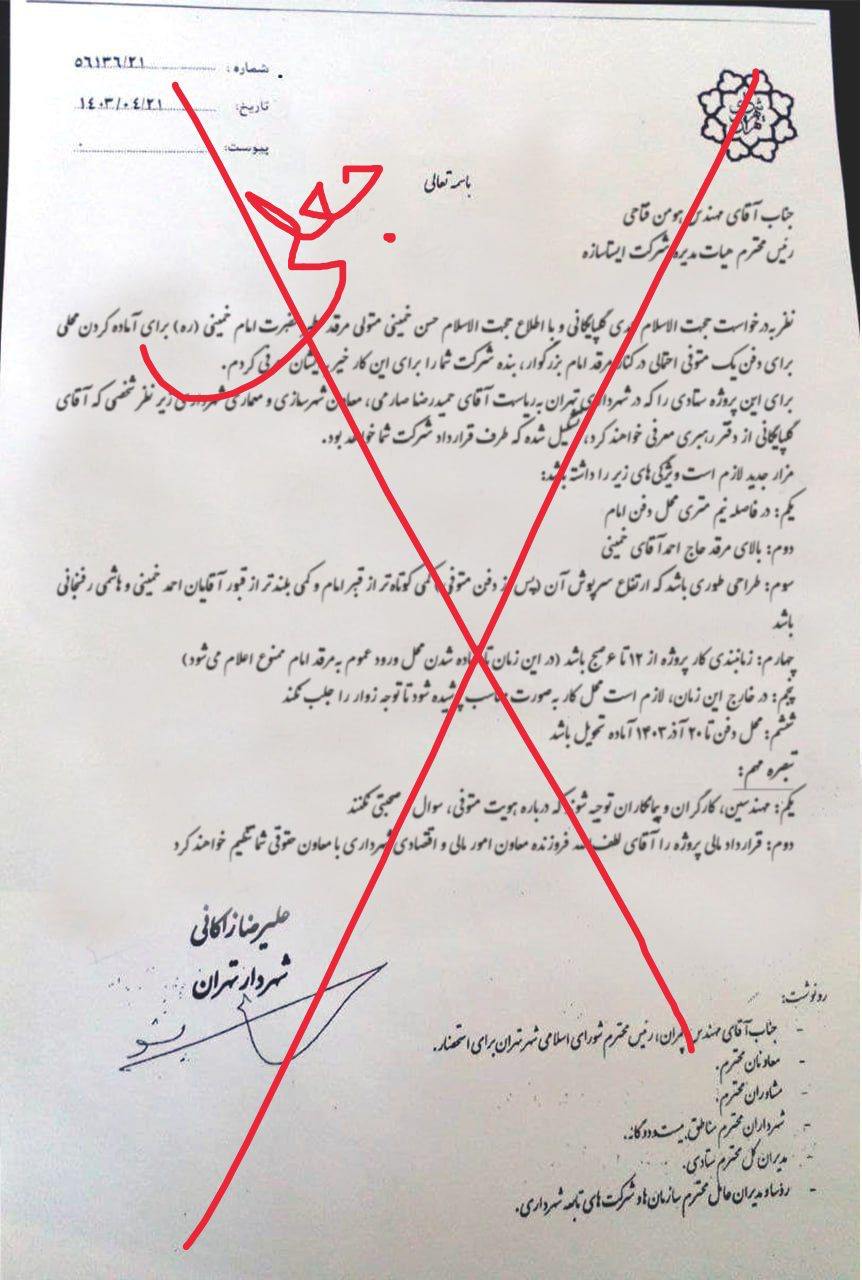 شماره: ٥٦١٣٦/٢١
تاریخ: ١٤٠٣/٠٤/٢١
پیوست: ٠
باسمه تعالی
جعلی
جناب آقای مهندس هومن فتاحی
رئیس محترم هیات مدیره شرکت ایستاسازه
نظر به درخواست حجت الاسلام گلپایگانی و با اطلاع حجت الاسلام حسن خمینی متولی مرقد حضرت امام خمینی (ره) برای آماده کردن محلی
برای دفن یک متوفی احتمالی در کنار مرقد امام بزرگوار، بنده شرکت شما را برای این کار خیر، پیشان معرفی کردم.
برای این پروژه ستادی را که در شهرداری تهران به ریاست آقای حمیدرضا صارمی، معاون شهرسازی و معماری شهرداری زیر نظر شخصی که آقای
گلپایگانی از دفتر رهبری معرفی خواهند کرد، تشکیل شده که طرف قرارداد شرکت شما خواهد بود.
مزار جدید لازم است ویژگی های زیر را داشته باشد:
یکم: در فاصله نیم متری محل دفن امام
دوم: بالای مرقد حاج احمد آقای خمینی
سوم: طراحی طوری باشد که ارتفاع سرپوش آن (پس از دفن متوفی) کمی کوتاه تر از قبر امام و کمی بلندتر از قبور آقایان احمد خمینی و هاشمی رفسنجانی
باشد
چهارم: زمانبندی کار پروژه از ۱۲ تا ۶ صبح باشد (در این زمان تا آماده شدن محل ورود عموم به مرقد امام ممنوع اعلام می‌شود)
پنجم: در خارج این زمان، لازم است محل کار به‌صورت مناسب پوشیده شود تا توجه زوار را جلب نکند
ششم: محل دفن تا ۲۰ آذر ۱۴۰۳ آماده تحویل باشد
تبصره مهم:
یکم: مهندسین، کارگران و پیمانکاران توجه شوند که درباره هویت متوفی، سوال و صحبتی نکنند
دوم: قرارداد مالی پروژه را آقای لطف‌الله فروزنده معاون امور مالی و اقتصادی شهرداری با معاون حقوقی شما تنظیم خواهند کرد
علیرضا زاکانی
شهردار تهران
رونوشت:
- جناب آقای مهندس چمران، رئیس محترم شورای اسلامی شهر تهران برای استحضار.
- معاونان محترم.
- مشاوران محترم.
- شهرداران محترم مناطق بیست و دوگانه.
- مدیران کل محترم ستادی.
- رؤسا و مدیران عامل محترم سازمان ها و شرکت های تابعه شهرداری.